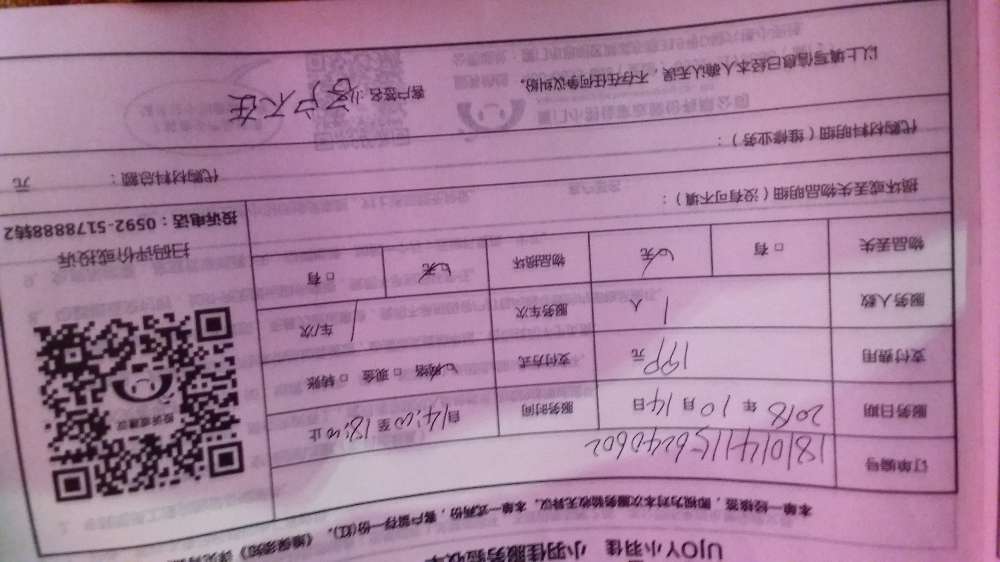 UJOY小羽佳 小羽佳服务验收单
本单一经核签，即视为对本次服务验收无异议。本单一式两份，客户留存一份(红)。
订单编号 1810141156240602
服务日期 2018年10月14日 服务时间 自14:00至18:00止
支付费用 199元 支付方式 网络 □ 现金 □ 转账
服务人数 1人 服务车次 1车/次
物品丢失 □ 有 无 物品损坏 无 □ 有
扫码评价或投诉
投诉电话：0592-5178888转2
损坏或丢失物品明细（没有可不填）：
代购材料明细（维修业务）：
代购材料总额： 元
以上填写信息已经本人确认无误，不存在任何争议纠纷。
客户签名: 客户不在